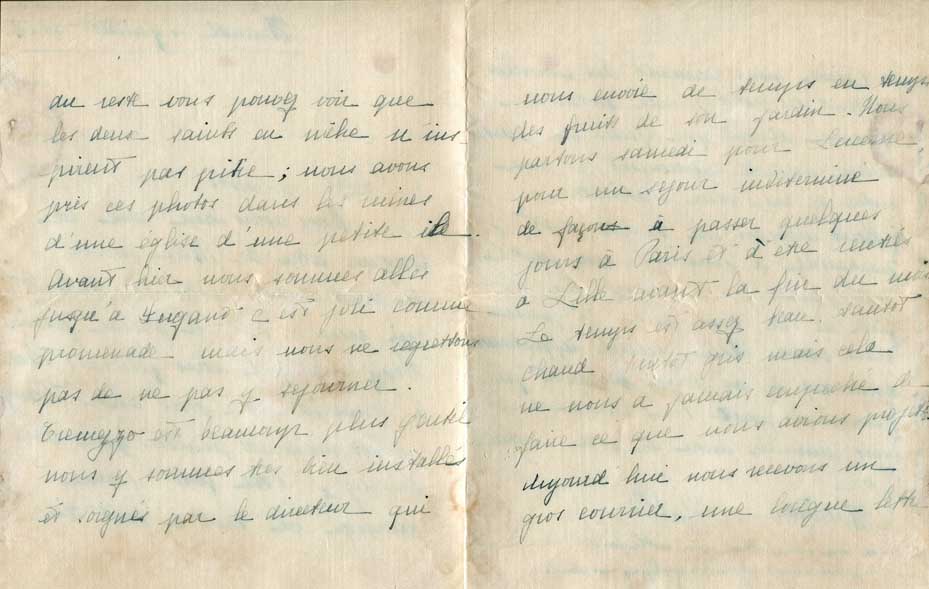 du reste vous pouvez voir que
les deux saints en niche n'ins-
pirent pas pitié ; nous avons
pris ces photos dans les ruines
d'une église d'une petite île.
Avant hier nous sommes allés
jusqu'à Lugano c'est joli comme
promenade mais nous ne regrettons
pas de ne pas y séjourner.
Tremezzo est beaucoup plus gentil
nous y sommes très bien installés
et soignés par le directeur qui
nous envoie de temps en temps
des fruits de son jardin. Nous
partons samedi pour Lucerne,
pour un séjour indéterminé
de façons à passer quelques
jours à Paris et à être rentrés
à Lille avant la fin du mois
Le temps est assez beau. tantôt
chaud tantôt gris mais cela
ne nous a jamais empêché de
faire ce que nous avions projeté
Aujourd hui nous recevons un
gros courrier, une longue lettre